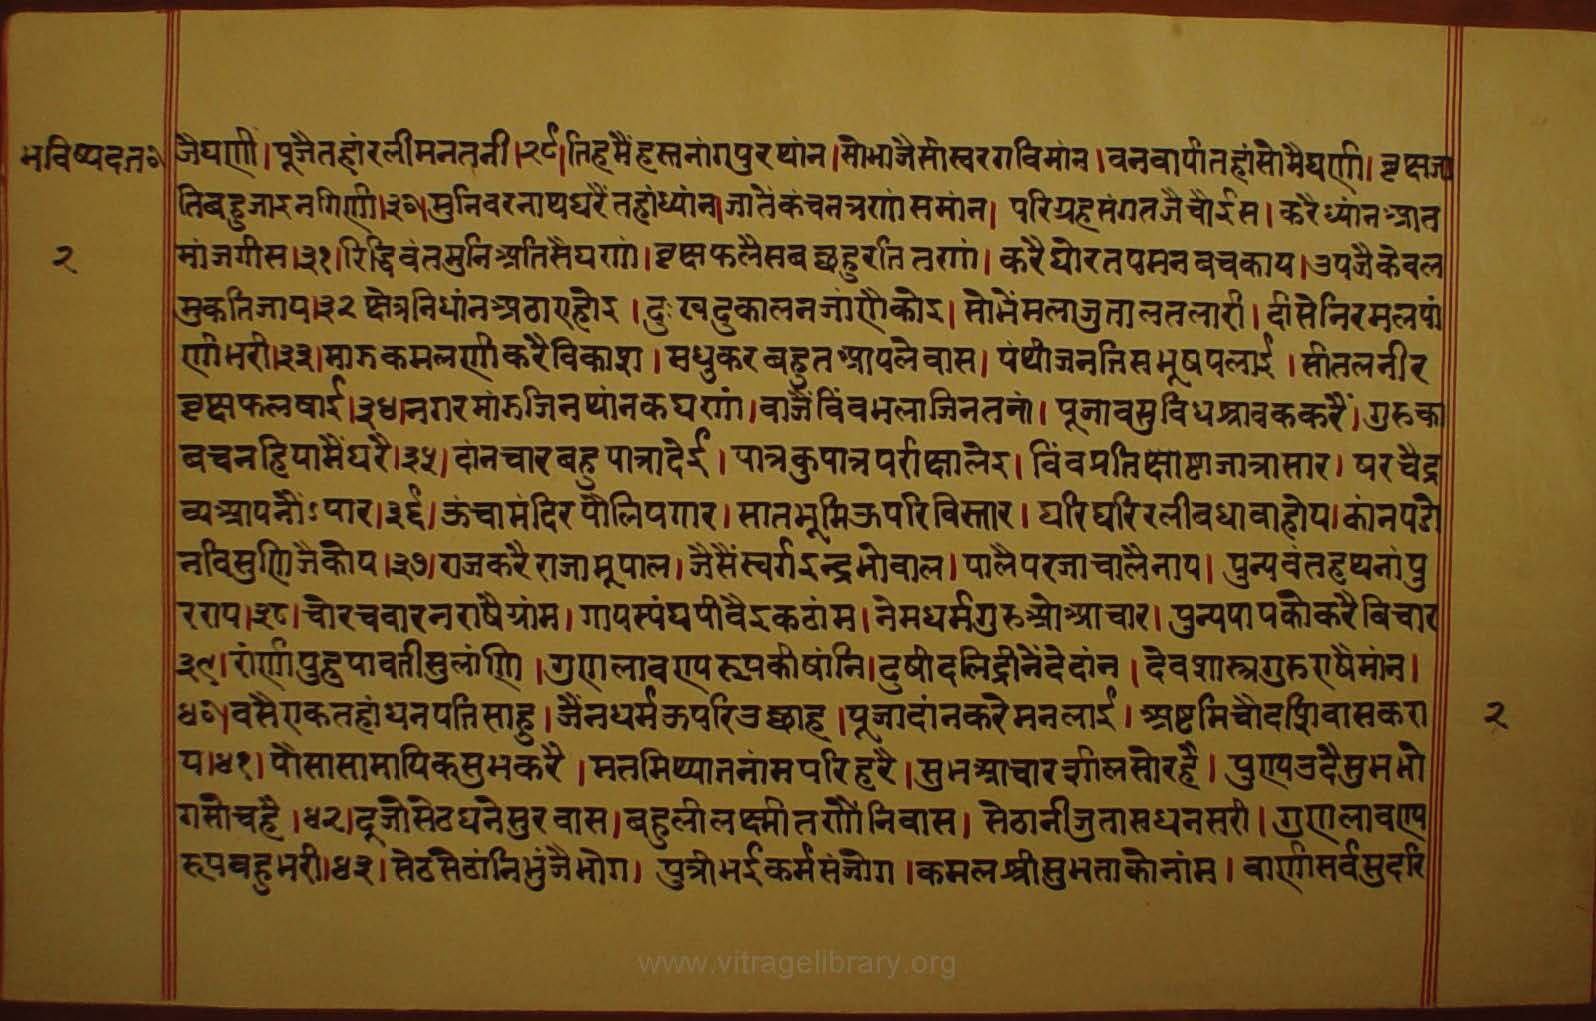 भविष्यदत०
जैघणी। पूजै तहां रली मन तनी।२९। तिह मैं हस्तनांगपुर थांन। सोभा जैसी स्वरग विमांन। वन वापी तहां सोभै घणी। वृक्ष जा
ति बहु जाइ न गिणी।३०। मुनिवर नाथ धरैं तहां ध्यांन। जातैं कंचन त्रणां समांन। परिग्रह संग तजै चौईस। करै ध्यांन आत
२
मां जगीस।३१। रिद्धिवंत मुनि अति सै घणां। वृक्ष फलै सब छहु रति तणां। करै घोर तप मन बच काय। उपजै केवल
मुकति जाय।३२ क्षेत्र निधांन अठारा होइ। दुःख दुकाल न जांणै कोइ। सोभैं भला जु ताल तलारी। दीसे निरमल पां
णी भरी।३३। माझ कमलणी करै विकाश। मधुकर बहुत आय ले वास। पंथी जन तिस भूष पलाई। सीतल नीर
वृक्ष फल षाई।३४। नगर मांझ जिन थांनक घणां। वाजैं विंव भला जिन तनां। पूजा वसुविध श्रावक करैं। गुरु का
बचन हिया मैं धरै।३५। दांन चार बहु पात्रा देई। पात्र कुपात्र परीक्षा लेइ। विंव प्रतिक्षोष्टा जात्रा सार। षरचै द्र
व्य आपनौं ऽपार।३६। ऊंचा मंदिर पौलि पगार। सात भूमि ऊपरि विस्तार। घरि घरि रली बधावा होय। कांन पडो
नवि सुणिजै कोय।३७। राज करै राजा भूपाल। जैसैं स्वर्ग इन्द्र भोवाल। पालै परजा चालै नाय। पुन्यवंत हथनांपु
र राय।३८। चोर चवार न राषै ग्रांम। गाय स्यंघ पीवै इक ठांम। नेम धर्म गुरु ओ आचार। पुन्य पाप को करै बिचार
३९। रांणी पुहुपावती सुलांणि। गुण लावण्य रूप की षांनि। दुषी दलिद्री नैं दे दांन। देव शास्त्र गुरु राषै मांन।
४०। वसै एक तहां धनपति साहु। जैंन धर्म ऊपरि उछाह। पूजा दांन करे मन लाई। अष्टमि चौदशि वास करा
२
य।४१। पौसा सामायिक सुभ करै। मत मिथ्यात नांम परिहरै। सुभ आचार शील सो रहै। पुण्य उदै सुभ भो
ग सो चहै।४२। दूजो सेठ धनेसुर वास। बहुली लक्ष्मी तणौं निवास। सेठानी जु तास धनसरी। गुण लावण्य
रूप बहु भरी।४३। सेठ सेठांनि भुंजै भोग। पुत्री भई कर्म संजोग। कमलश्री सुभ ताको नांम। बाणी सर्व सुदरि
www.vitragelibrary.org